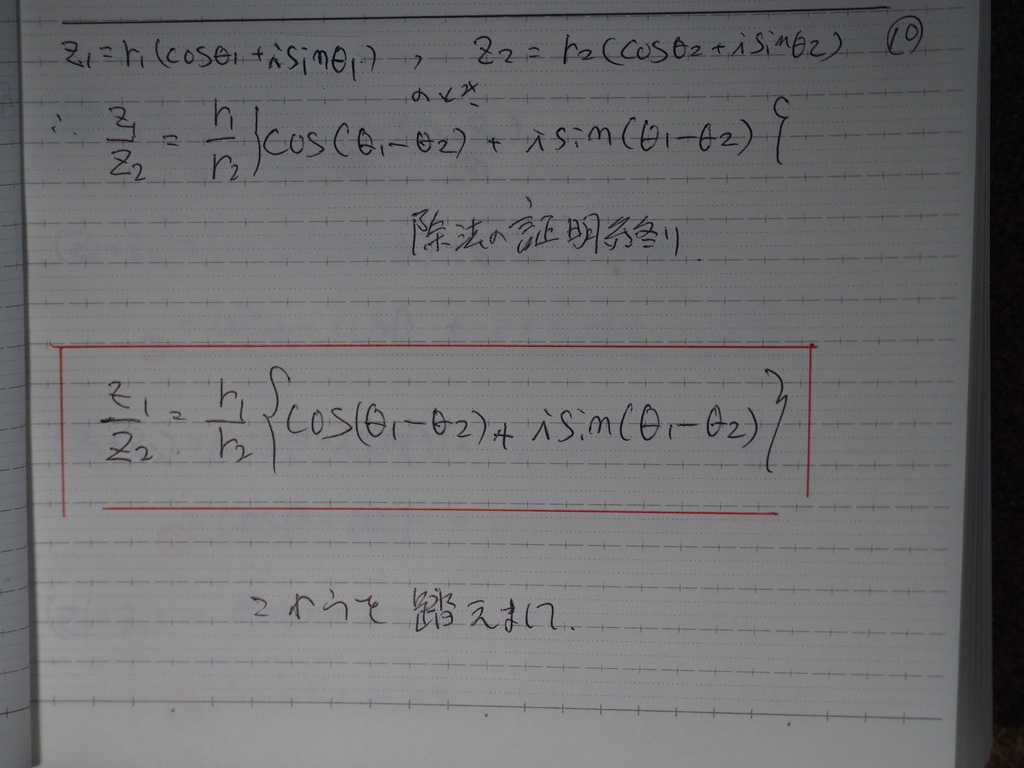 z₁=r₁(cosθ₁+isinθ₁), z₂=r₂(cosθ₂+isinθ₂) ⑩
のとき
∴ z₁/z₂ = r₁/r₂{cos(θ₁-θ₂)+isin(θ₁-θ₂)}
除法の証明終り
z₁/z₂ = r₁/r₂{cos(θ₁-θ₂)+isin(θ₁-θ₂)}
これらを踏えまして.